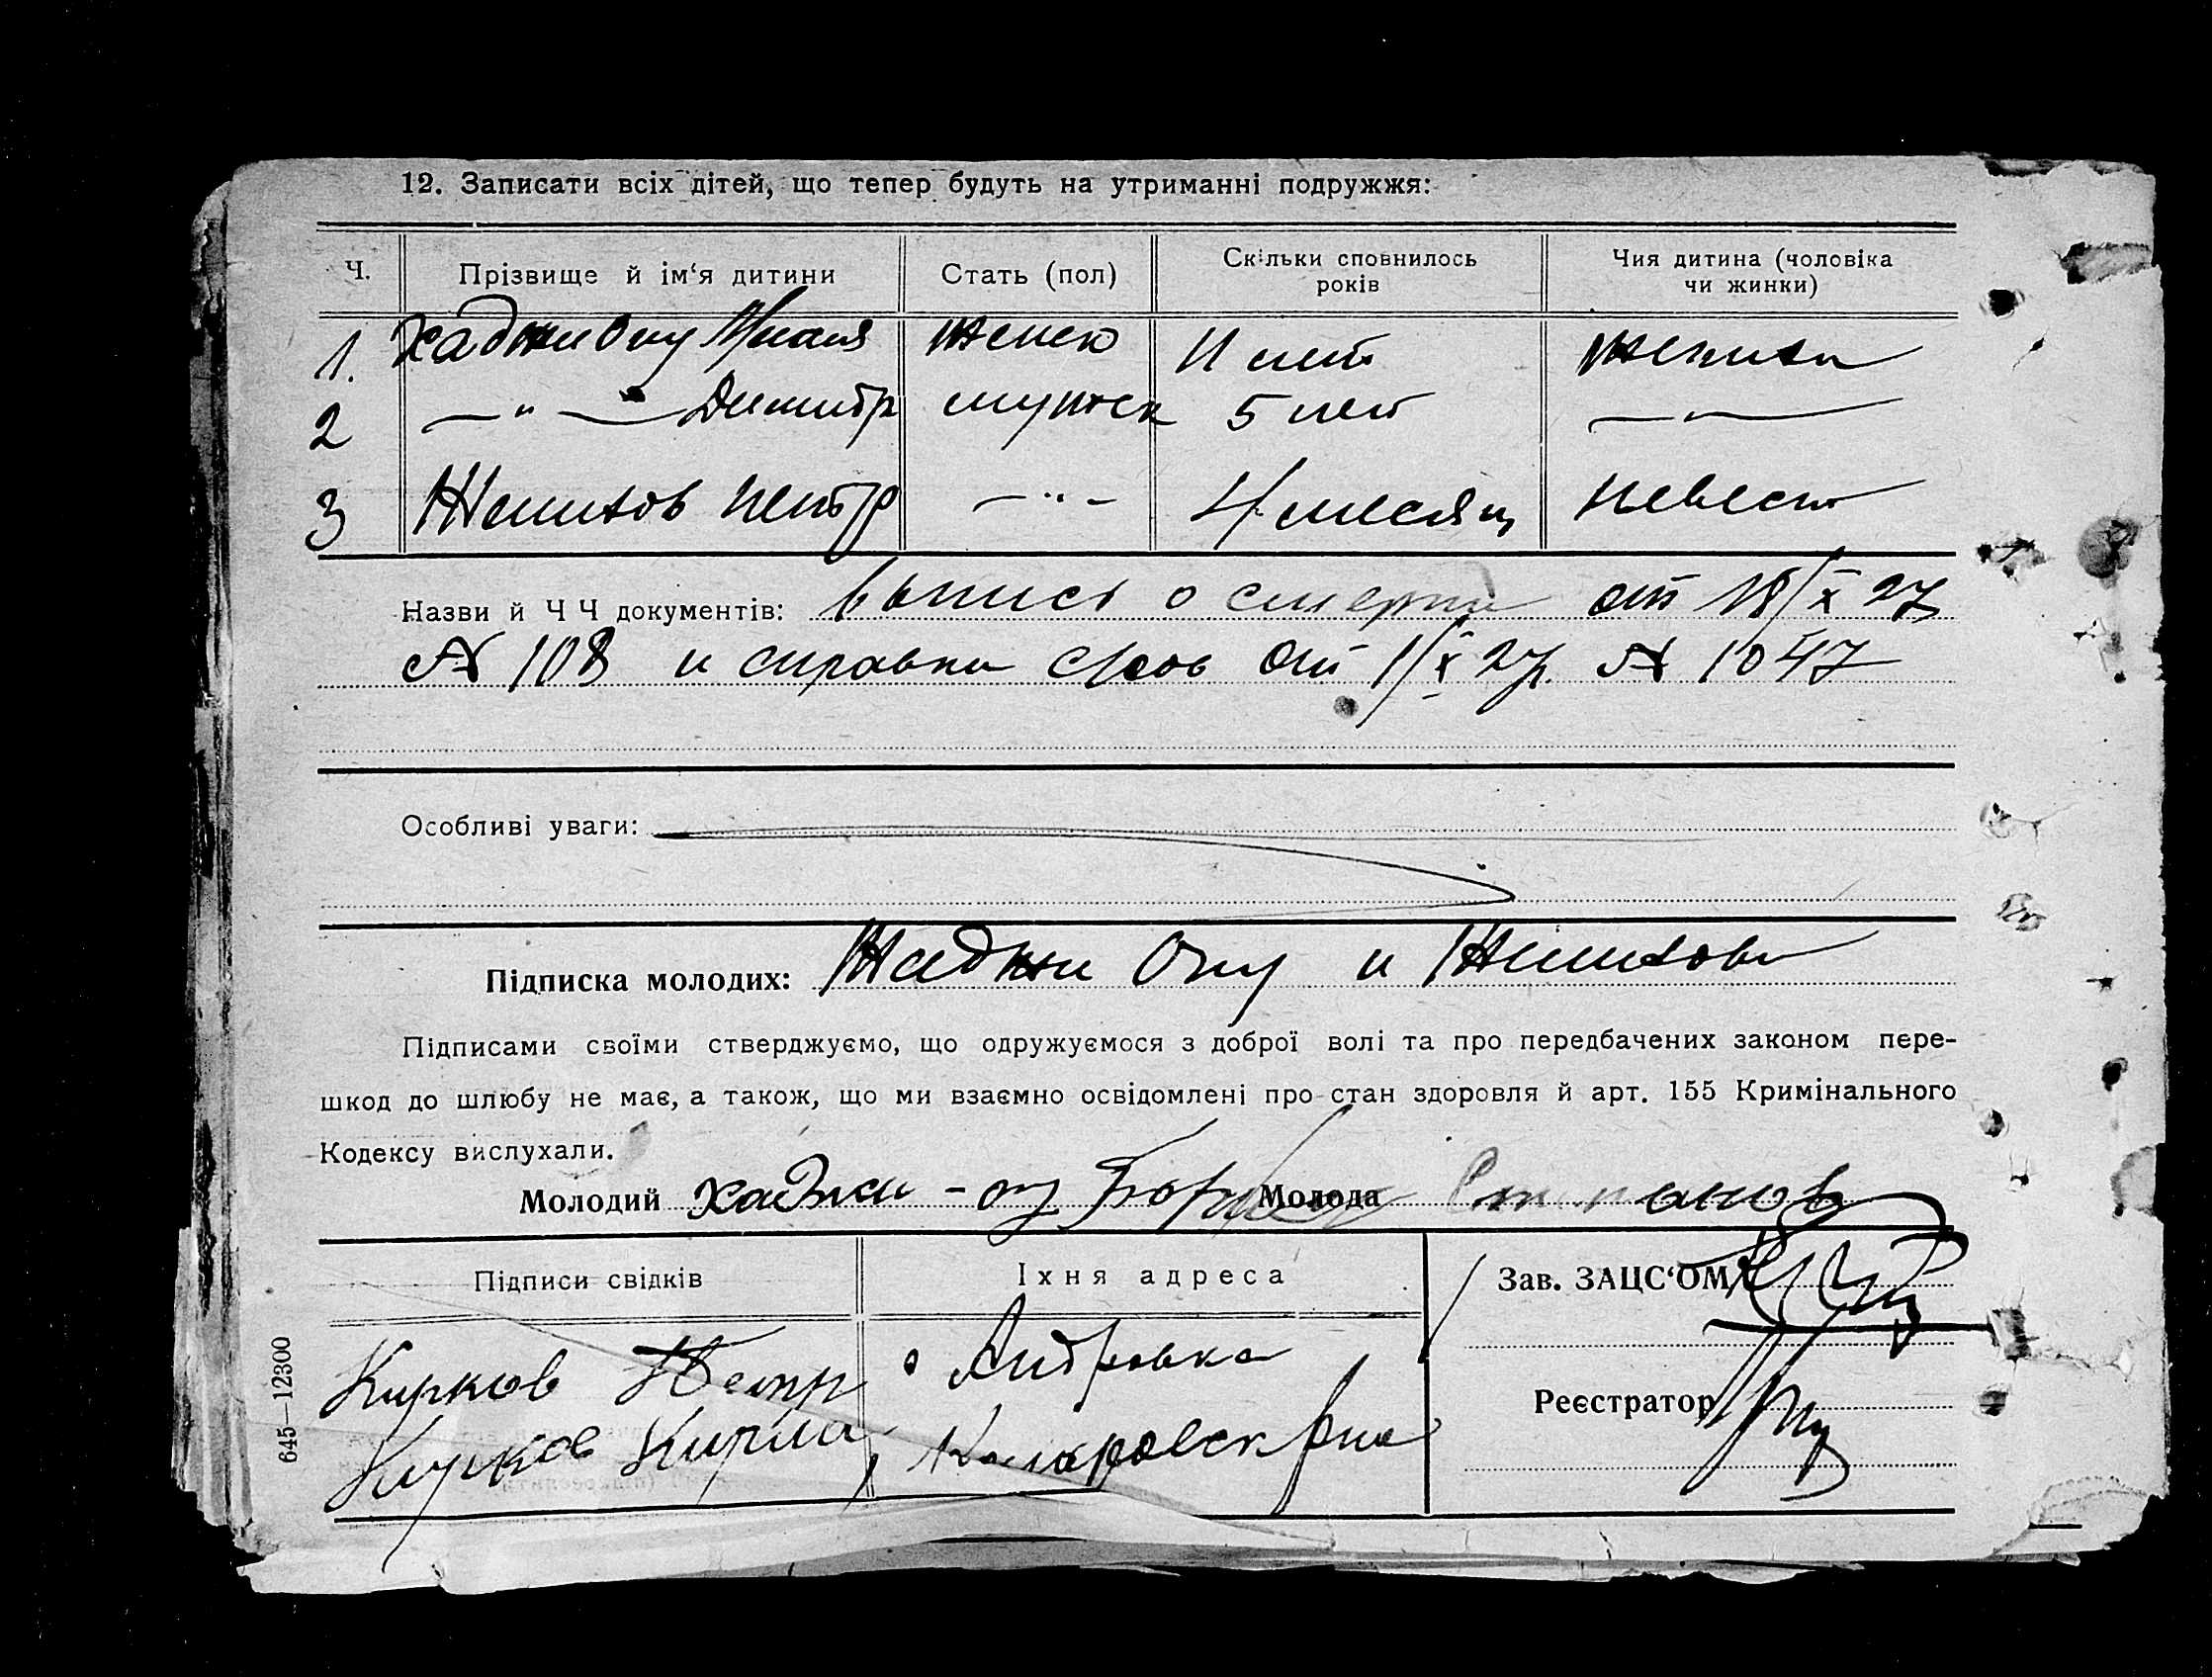 12. Записати всіх дітей, що тепер будуть на утриманні подружжя:
Ч. Прізвище й ім‘я дитини Стать (пол) Скільки сповнилось років Чия дитина (чоловіка чи жинки)
1. Хаджи Огу женск 11 лет жениха
2 —"— Димитр мужск 5 лет —"—
3 Жекихов? Петр —"— 4 месяц невест
Назви й Ч Ч документів: выпись о смерти от 18/X 27
№ 108 и справки от 1/X 27 г. № 1047
Особливі уваги:
Підписка молодих: Хаджи Огу и
Підписами своїми стверджуємо, що одружуємося з доброї волі та про передбачених законом пере-
шкод до шлюбу не має, а також, що ми взаємно освідомлені про стан здоровля й арт. 155 Кримінального
Кодексу вислухали.
Молодий Хаджи-огу Молода
Підписи свідків Їхня адреса Зав. ЗАЦС‘ОМ
Кирков Петр с Андровка
Кирков Кирил Коларовск рна
Реєстратор
645—12300